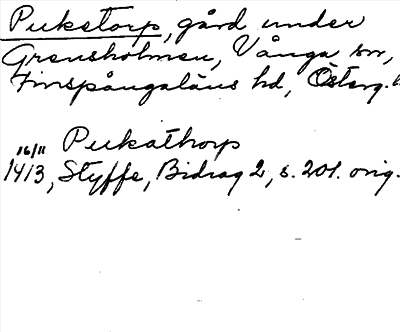 Pukstorp, gård under
Grensholmen, Vånga sn,
Finspångaläns hd, Österg. l.
Pukathorp
16/11 1413, Styffe, Bidrag 2, s. 201. orig.